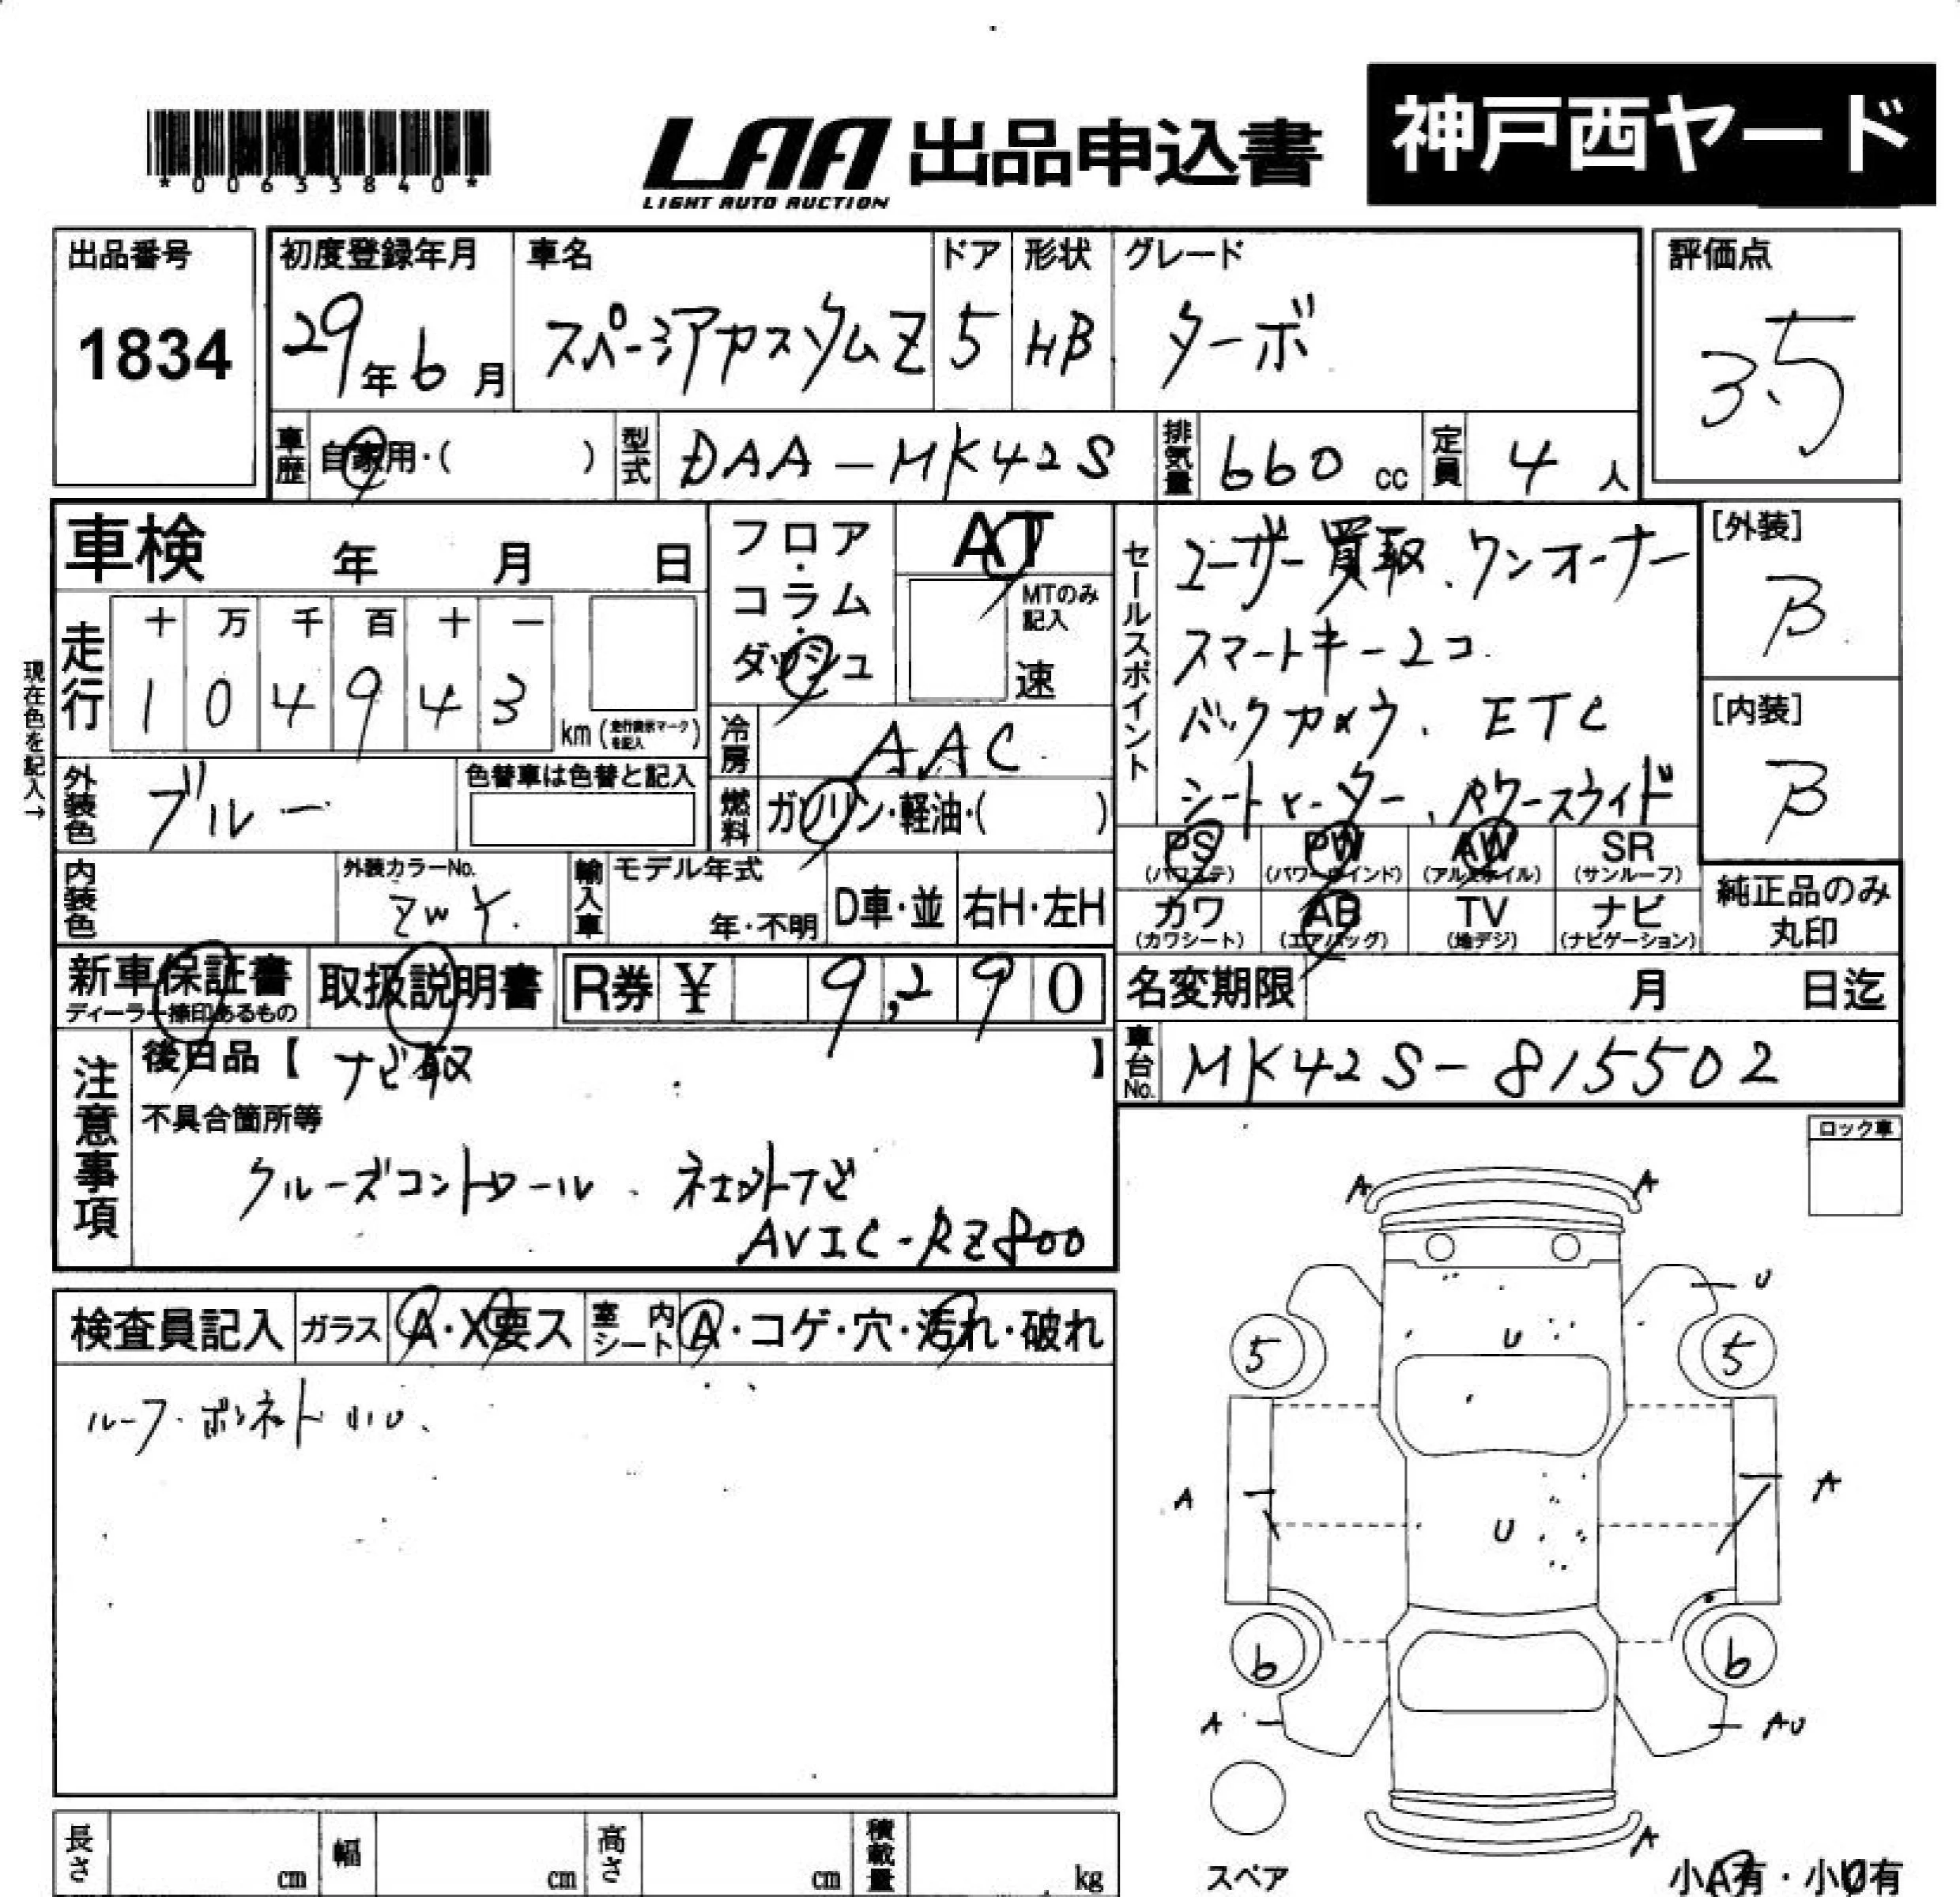 神戸西ヤード
*00633840*
LAA 出品申込書
LIGHT AUTO AUCTION
出品番号
1834
初度登録年月
29年6月
車名
スペーシアカスタムZ
ドア
5
形状
HB
グレード
ターボ
評価点
3.5
車歴
自家用・( )
型式
DAA-MK42S
排気量
660cc
定員
4人
車検 年 月 日
現在色を記入→
走行
十 万 千 百 十 一
1 0 4 9 4 3
km(走行表示マークを記入)
フロア・コラム・ダッシュ
AT
MTのみ記入
速
冷房
AAC
外装色
ブルー
色替車は色替と記入
燃料
ガソリン・軽油・( )
内装色
外装カラーNo.
ZWY.
輸入車
モデル年式
年・不明
D車・並
右H・左H
セールスポイント
ユーザー買取、ワンオーナー
スマートキー2コ.
バックカメラ、ETC
シートヒーター、パワースライド
[外装]
B
[内装]
B
PS (パワステ)
PW (パワーウインド)
AW (アルミホイル)
SR (サンルーフ)
カワ (カワシート)
AB (エアバッグ)
TV (地デジ)
ナビ (ナビゲーション)
純正品のみ丸印
新車保証書
ディーラー捺印あるもの
取扱説明書
R券 ¥ 9,290
名変期限 月 日迄
車台No.
MK42S-815502
注意事項
後日品【 ナビ取 】
不具合箇所等
クルーズコントロール 、
AVIC-RZ800
検査員記入
ガラス
A・X要ス
室内シート
A・コゲ・穴・汚れ・破れ
ルーフ・ボンネット小U、
ロック車
A A
U
5 U 5
A U A
6 6
A AU
A
スペア
小A有・小U有
長さ cm
幅 cm
高さ cm
積載量 kg